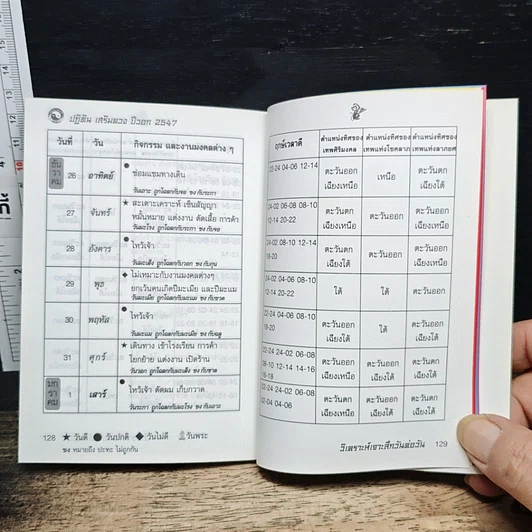 ปฏิทิน เสริมดวง ปีวอก 2547
วันที่ วัน กิจกรรม และงานมงคลต่าง ๆ
ธันวาคม
26 อาทิตย์ ● ซ่อมแซมทางเดิน
วันเถาะ ถูกโฉลกกับจอ ชงกับระกา
27 จันทร์ ★ สะเดาะเคราะห์ เซ็นสัญญา
หมั้นหมาย แต่งงาน ตัดเสื้อ การค้า
28 อังคาร ● ไหว้เจ้า
29 พุธ ◆ ไม่เหมาะกับงานมงคลต่างๆ
ยกเว้นคนเกิดปีมะเมีย และปีมะแม
30 พฤหัส ● ไหว้เจ้า
31 ศุกร์ ★ เดินทาง เข้าโรงเรียน การค้า
โยกย้าย แต่งงาน เปิดร้าน
มกราคม
1 เสาร์ ● ไหว้เจ้า ตัดผม เก็บกวาด
128 ★ วันดี ● วันปกติ ◆ วันไม่ดี วันพระ
ชง หมายถึง ปะทะ ไม่ถูกกัน
ฤกษ์เวลาดี ตำแหน่งทิศของเทพศิริมงคล ตำแหน่งทิศของเทพแห่งโชคลาภ ตำแหน่งทิศของเทพแห่งลาภยศ
22-24 04-06 12-14 ตะวันออกเฉียงเหนือ เหนือ ตะวันตกเฉียงใต้
02-04 06-08 08-10
12-14 20-22 ตะวันตกเฉียงเหนือ ตะวันออก ตะวันออก
02-04 08-10 12-14
18-20 ตะวันตกเฉียงใต้ ตะวันออก ตะวันออกเฉียงใต้
02-04 06-08 08-10
12-14 20-22 ใต้ ใต้ ตะวันออก
04-06 06-08 08-10
18-20 ตะวันออกเฉียงใต้ ใต้ ตะวันออก
22-24 24-02 06-08
08-10 12-14 14-16
16-18 ตะวันออกเฉียงเหนือ ตะวันออกเฉียงใต้ ตะวันออกเฉียงใต้
22-24 24-02
02-04 04-06 ตะวันตกเฉียงเหนือ ตะวันออกเฉียงใต้ ตะวันตกเฉียงใต้
วิเคราะห์เจาะลึกวันต่อวัน 129